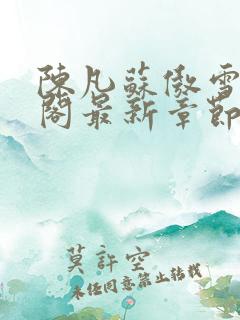 陳凡蘇傲雪
閣最新章節
莫許空
未經同意禁止轉載